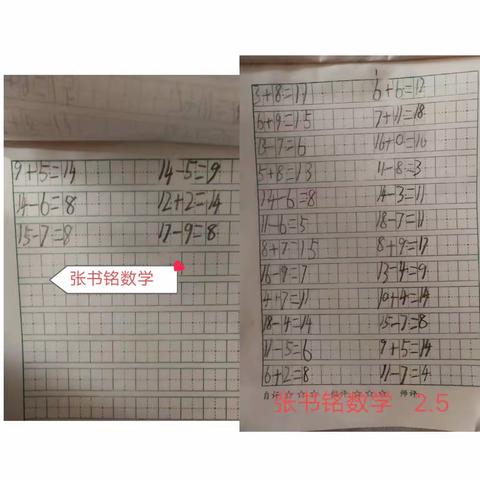 9+5=14 14-5=9
14-6=8 12+2=14
15-7=8 17-9=8
张书铭数学
3+8=11 6+6=12
6+9=15 7+11=18
13-7=6 16+0=16
5+8=13 11-8=3
14-6=8 14-3=11
11-6=5 18-7=11
8+7=15 8+9=17
16-9=7 13-4=9
4+7=11 10+4=14
18-4=14 15-7=8
11-5=6 9+5=14
6+2=8 11-7=4
自评☆☆☆ ☆☆☆ 师评
张书铭数学 2.5